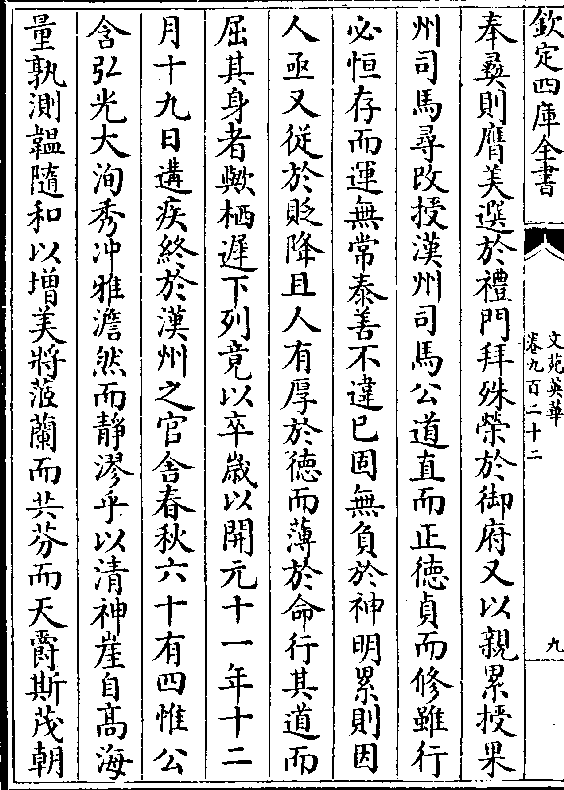 欽定四庫全書
文苑英華
卷九百二十二
九
奉彛則膺美選於禮門拜殊榮於御府又以親累授果
州司馬尋改授漢州司馬公道直而正徳貞而修雖行
必恒存而運無常泰善不違已固無負於神明累則因
人亟又從於貶降且人有厚於徳而薄於命行其道而
屈其身者歟栖遲下列竟以卒歳以開元十一年十二
月十九日遘疾終於漢州之官舍春秋六十有四惟公
含弘光大洵秀冲雅澹然而静漻乎以清神崖自高海
量孰測韞隨和以增美將菃蘭而共芬而天爵斯茂朝